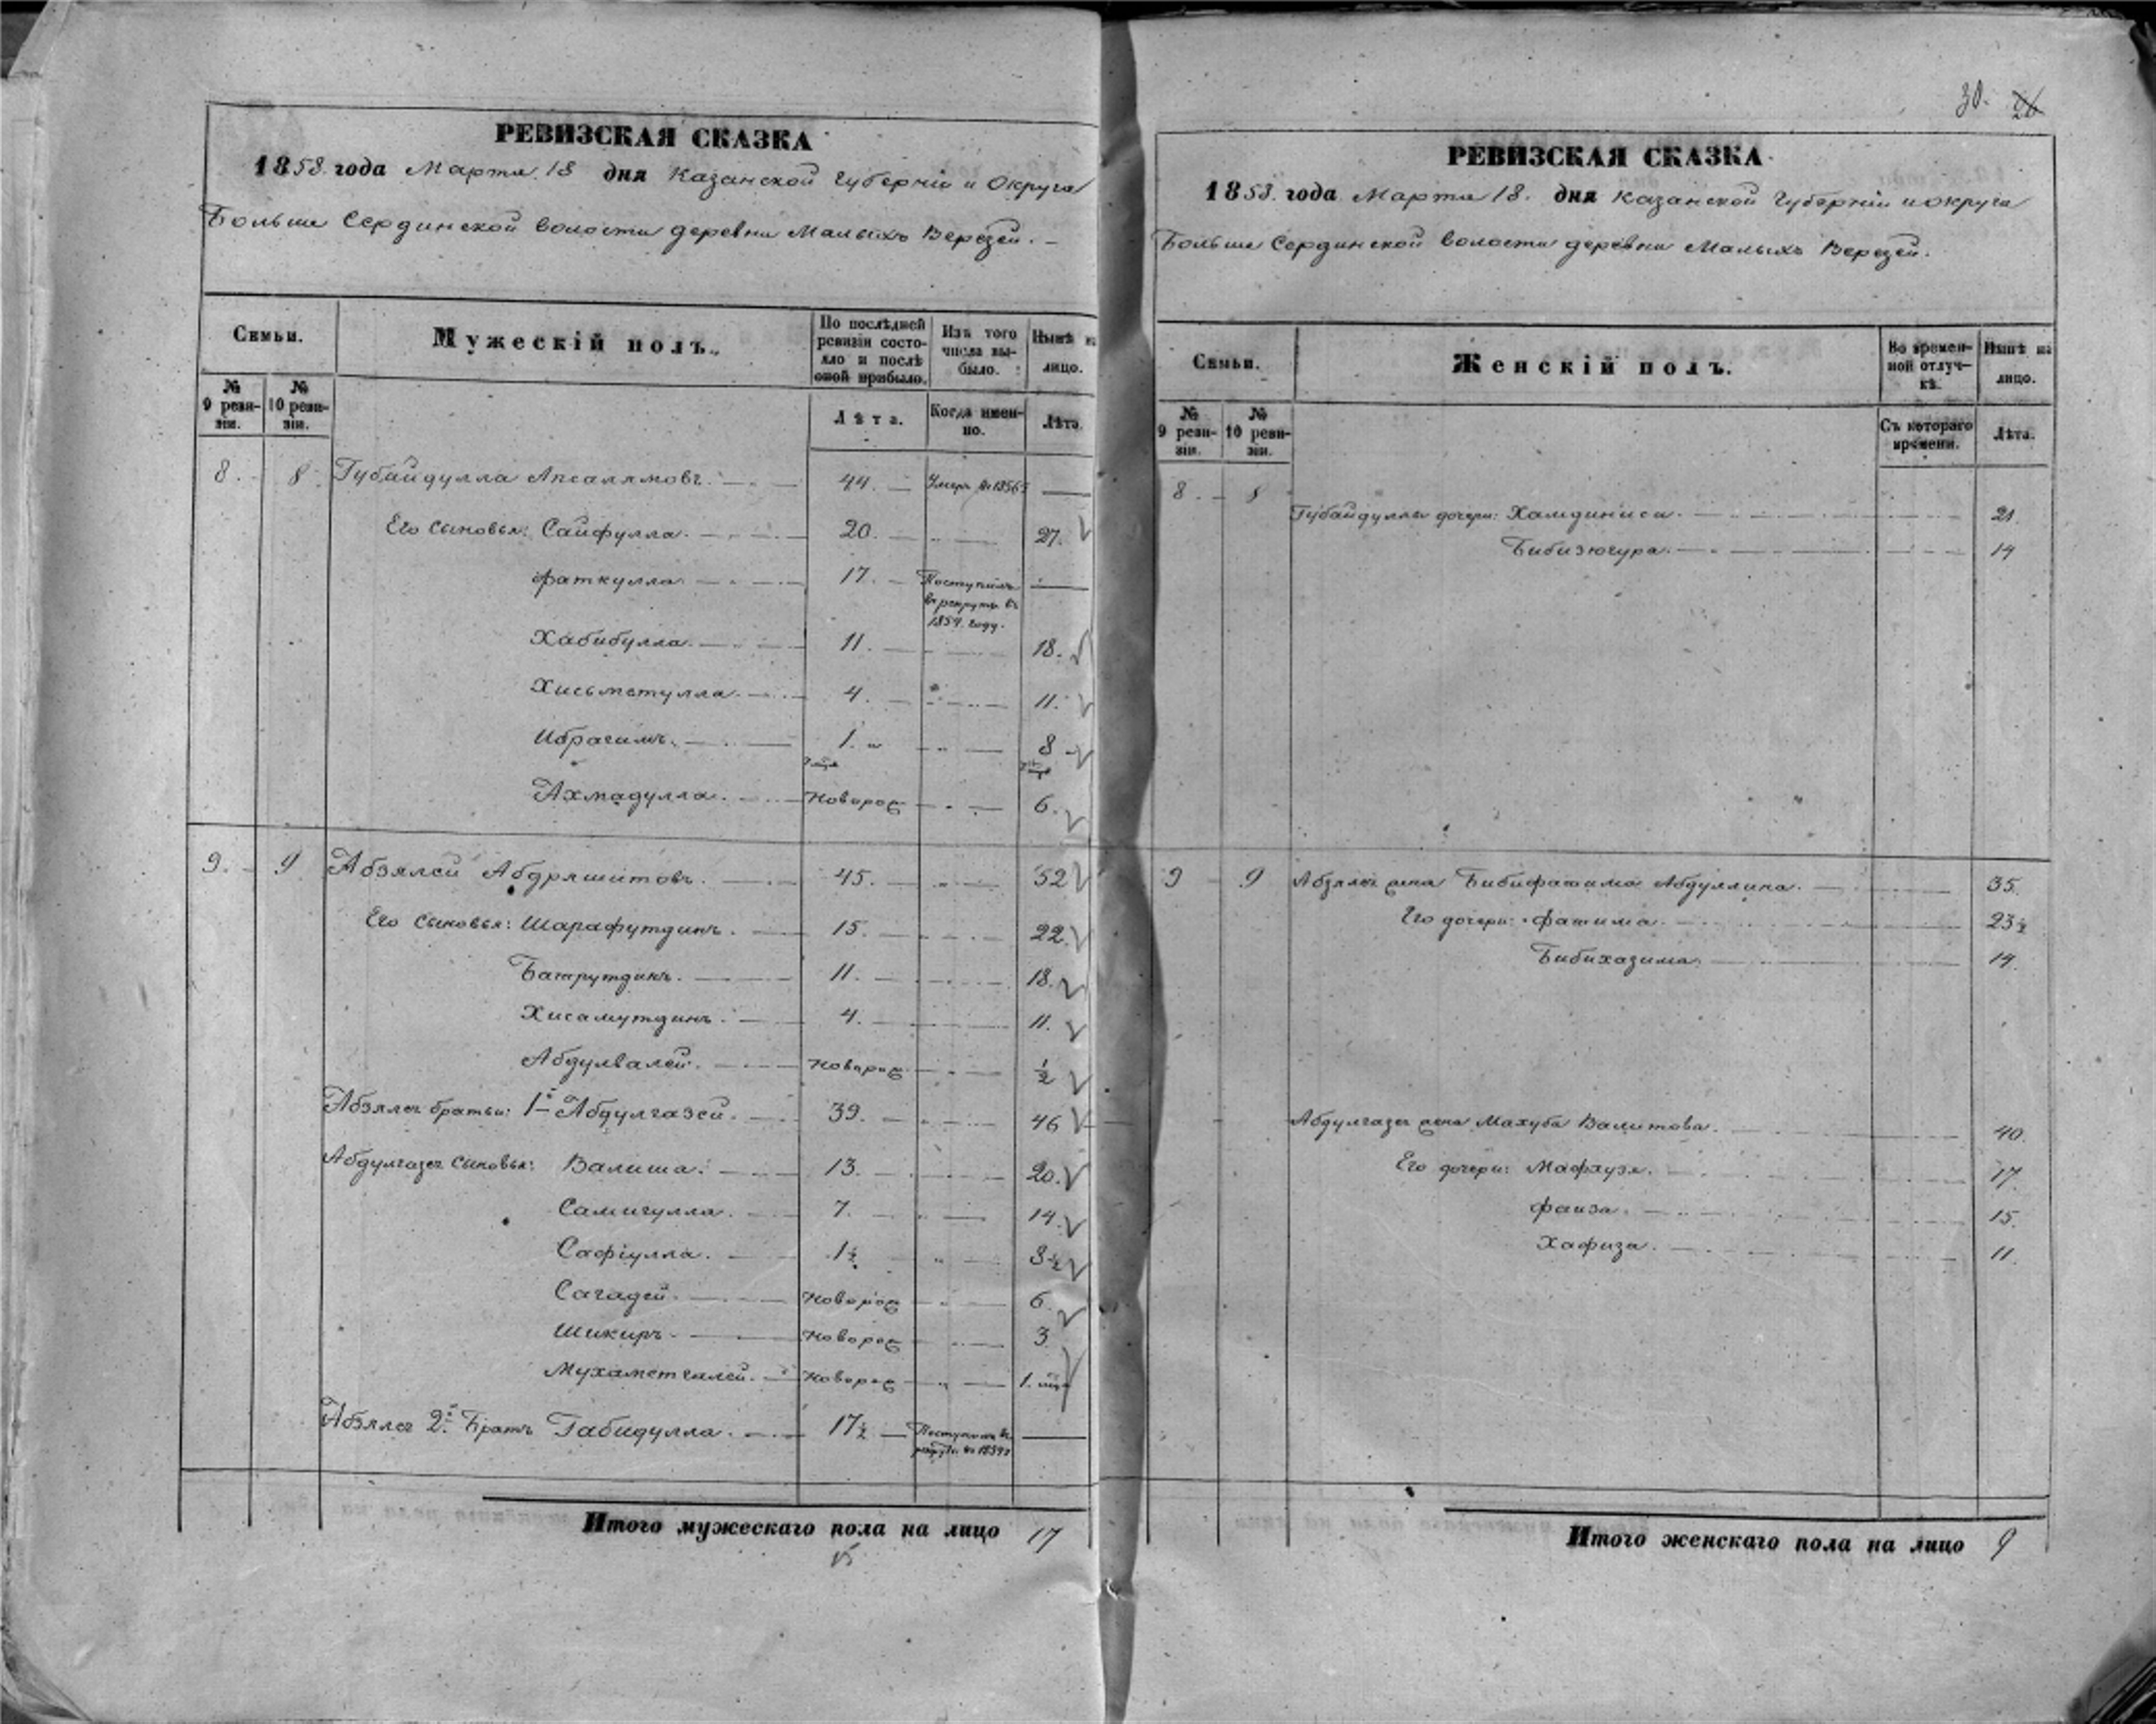 30. 26
РЕВИЗСКАЯ СКАЗКА
1858. года Марта 18 дня Казанской Губерніи и Округа
Больше Сердинской волости деревни Малыхъ Верезей.
Семьи. Мужескій полъ. По послѣдней ревизіи состояло и послѣ оной прибыло. Изъ того числа выбыло. Нынѣ на лицо.
№ 9 ревизіи. № 10 ревизіи. Лѣта. Когда именно. Лѣта.
8. 8. Губайдулла Апсалямовъ. 44. Умеръ въ 1856
Его сыновья: Сайфулла. 20. 27.
Фаткулла 17. Поступилъ въ рекруты въ 1854. году.
Хабибулла. 11. 18.
Хисьметулла. 4. 11.
Ибрагимъ. 1. 8
Ахмадулла. Новорож 6.
9. 9. Абзялей Абдряшитовъ. 45. 52
Его сыновья: Шарафутдинъ. 15. 22.
Батрутдинъ. 11. 18.
Хисамутдинъ. 4. 11.
Абдулвалей. Новорож ½
Абзялея братья: 1й Абдулгазей. 39. 46
Абдулгазея сыновья: Валиша. 13. 20.
Самигулла. 7. 14.
Сафіулла. 1½ 8½
Сагадей. Новорож 6.
Шикиръ. Новорож 3
Мухаметгалей. Новорож 1.
Абзялея 2й Братъ Габидулла. 17½ Поступилъ въ
Итого мужескаго пола на лицо 17
15
РЕВИЗСКАЯ СКАЗКА
1858. года Марта 18. дня Казанской Губерніи и округа
Больше Сердинской волости деревни Малыхъ Верезей.
Семьи. Женскій полъ. Во временной отлучкѣ. Нынѣ на лицо.
№ 9 ревизіи. № 10 ревизіи. Съ котораго времени. Лѣта.
8. 8 Губайдуллы дочери: Хамдиниса. 21.
Бибизюгура. 14
9 9 Абзялея жена Бибифатима Абдуллина. 35.
Его дочери: Фатима. 23½
Бибихазима. 14.
Абдулгазея жена Махуба Валитова. 40.
Его дочери: Мафаузя. 17.
Фаиза. 15.
Хафиза. 11.
Итого женскаго пола на лицо 9